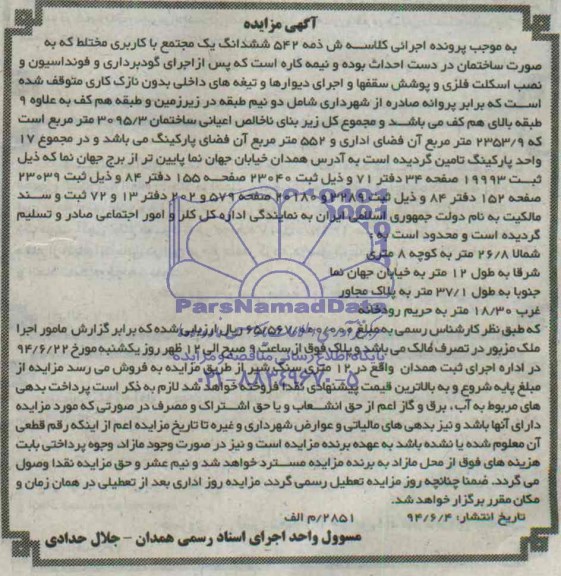 آگهی مزایده
به موجب پرونده اجرائی کلاسه ش ذمه ۵۴۲ ششدانگ یک مجتمع با کاربری مختلط که به
صورت ساختمان در دست احداث بوده و نیمه کاره است که پس ازاجرای گودبرداری و فونداسیون و
نصب اسکلت فلزی و پوشش سقفها و اجرای دیوارها و تیغه های داخلی بدون نازک کاری متوقف شده
است که برابر پروانه صادره از شهرداری شامل دو نیم طبقه در زیرزمین و طبقه هم کف به علاوه ۹
طبقه بالای هم کف می باشد و مجموع کل زیر بنای ناخالص اعیانی ساختمان ۳۰۹۵/۳ متر مربع است
که ۲۳۵۳/۹ متر مربع آن فضای اداری و ۵۵۲ متر مربع آن فضای پارکینگ می باشد و در مجموع ۱۷
واحد پارکینگ تامین گردیده است به آدرس همدان خیابان جهان نما پایین تر از برج جهان نما که ذیل
ثبت ۱۹۹۹۳ صفحه ۳۴ دفتر ۷۱ و ذیل ثبت ۲۳۰۴۰ صفحه ۱۵۵ دفتر ۸۴ و ذیل ثبت ۲۳۰۳۹
صفحه ۱۵۲ دفتر ۸۴ و ذیل ثبت صفحه ۵۷۹ و ۲۰۲ دفتر ۱۳ و ۷۲ ثبت و سند
مالکیت به نام دولت جمهوری اسلامی ایران به نمایندگی اداره کل کار و امور اجتماعی صادر و تسلیم
گردیده است و محدود است به :
شمالا ۲۶/۸ متر به کوچه ۸ متری
شرقا به طول ۱۲ متر به خیابان جهان نما
جنوبا به طول ۳۷/۱ متر به پلاک مجاور
غرب ۱۸/۳۰ متر به حریم رودخانه
که طبق نظر کارشناس رسمی به مبلغ ریال ارزیابی شده که برابر گزارش مامور اجرا
ملک مزبور در تصرف مالک می باشد و پلاک فوق از ساعت ۹ صبح الی ۱۲ ظهر روز یکشنبه مورخ ۹۴/۶/۲۲
در اداره اجرای ثبت همدان واقع در ۱۲ متری سنگ شیر از طریق مزایده به فروش می رسد مزایده از
مبلغ پایه شروع و به بالاترین قیمت پیشنهادی نقدا فروخته خواهد شد لازم به ذکر است پرداخت بدهی
های مربوط به آب، برق و گاز اعم از حق انشعاب و یا حق اشتراک و مصرف در صورتی که مورد مزایده
دارای آنها باشد و نیز بدهی های مالیاتی و عوارض شهرداری و غیره تا تاریخ مزایده اعم از اینکه رقم قطعی
آن معلوم شده یا نشده باشد به عهده برنده مزایده است و نیز در صورت وجود مازاد، وجوه پرداختی بابت
هزینه های فوق از محل مازاد به برنده مزایده مسترد خواهد شد و نیم عشر و حق مزایده نقدا وصول
می گردد. ضمنا چنانچه روز مزایده تعطیل رسمی گردد، مزایده روز اداری بعد از تعطیلی در همان زمان و
مکان مقرر برگزار خواهد شد.
تاریخ انتشار: ۹۴/۶/۴ ۲۸۵۱/م الف
مسوول واحد اجرای اسناد رسمی همدان - جلال حدادی
ParsNamadData
پایگاه اطلاع رسانی مناقصه و مزایده
۰۲۱-۸۸۳۴۹۶۷۰-۵